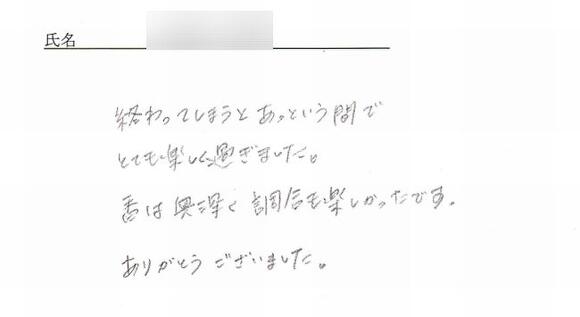 氏名
終わってしまうとあっという間で
とても楽しく過ぎました。
香は興深く調合も楽しかったです。
ありがとうございました。